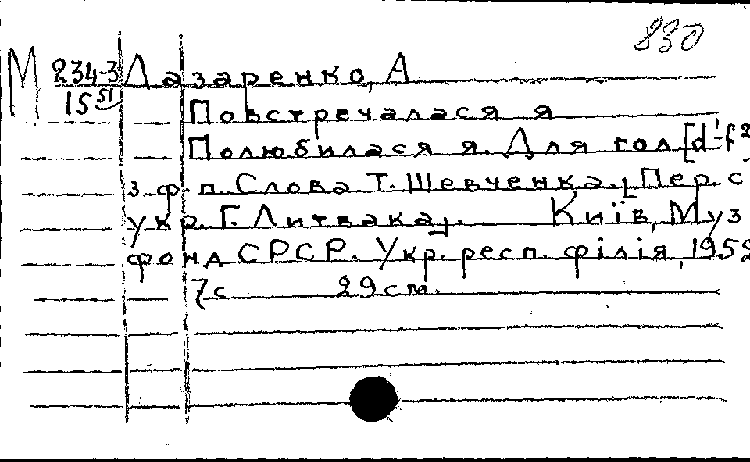 830
М 234-3 Лазаренко, А
15 51
Повстречалася я
Полюбилася я. Для гол. [d'-f²]
з ф-п. Слова Т. Шевченка. [Пер. с
укр. Г. Литвака]. Київ, Муз
фонд СРСР. Укр. респ. філія, 1952
7с 29 см.